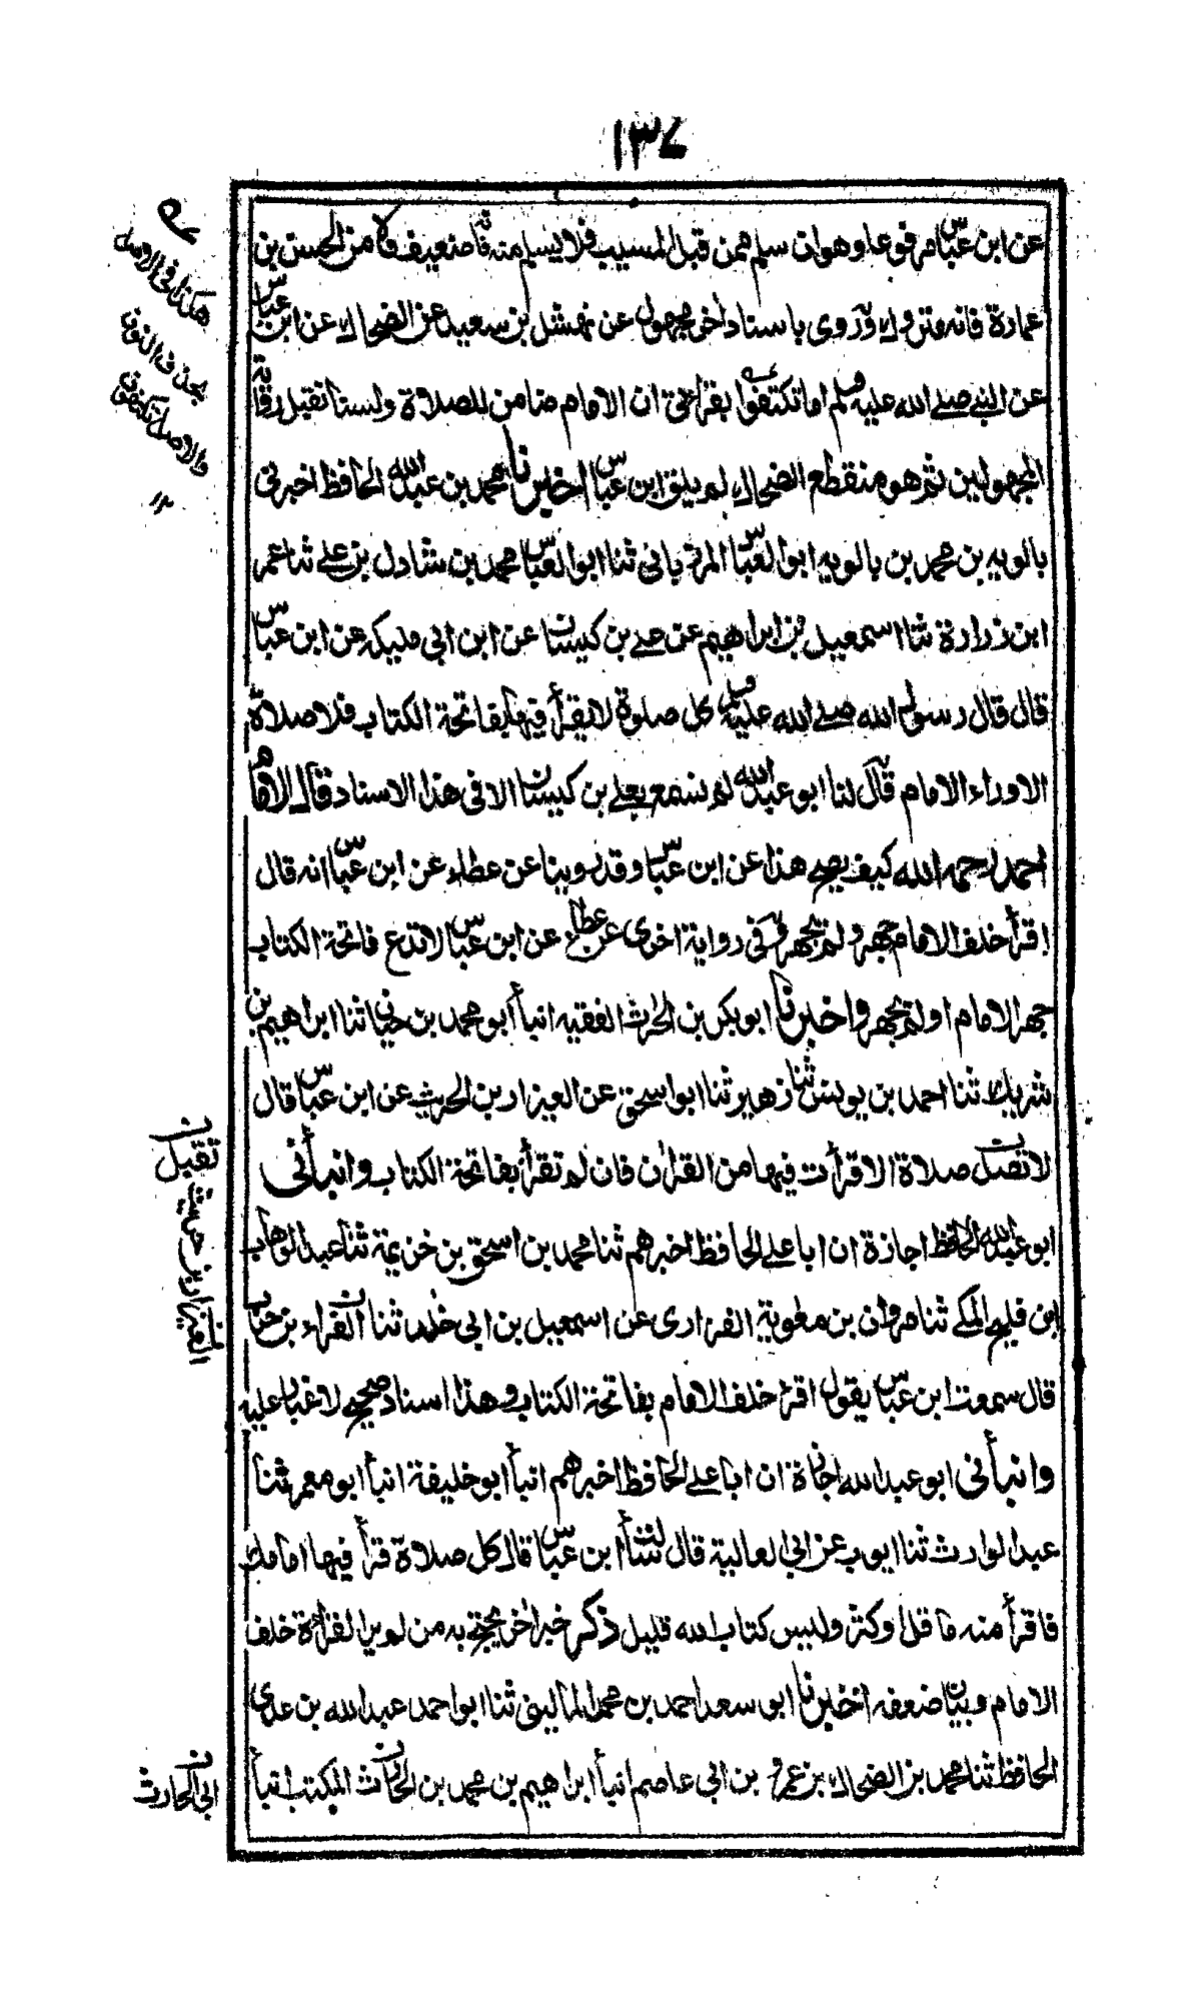 ١٣٤
عن ابن عباس مرفوعا وهو ان سلم ممن قبل المسيب فلا يسلم منه فانه ضعيف ولا من الحسن بن
عمارة فانه متروك وروى باسناد اخر مجهول عن نهشل بن سعيد عن الضحاك عن ابن عباس
عن النبي صلى الله عليه وسلم اما تكتفوا بقراءتي ان الامام ضامن للصلاة ولسنا نقبل رواية
المجهولين ثم هو منقطع الضحاك لم يلق ابن عباس اخبرنا محمد بن عبد الله الحافظ اخبرني
بالويه بن محمد بن بالويه ابو العباس المرزباني ثنا ابو العباس محمد بن شادل بن علي ثنا عمر
ابن زرارة ثنا اسمعيل بن ابراهيم عن علي بن كيسان عن ابن ابي مليكة عن ابن عباس
قال قال رسول الله صلى الله عليه وسلم كل صلوة لا يقرأ فيها بفاتحة الكتاب فلا صلاة
الا وراء الامام قال لنا ابو عبد الله لم نسمع بعلي بن كيسان الا في هذا الاسناد قال الامام
احمد رحمه الله كيف يصح هذا عن ابن عباس وقد روينا عن عطاء عن ابن عباس انه قال
اقرأ خلف الامام جهر ولم يجهر وفي رواية اخرى عن عطاء عن ابن عباس لا تدع فاتحة الكتاب
جهر الامام او لم يجهر واخبرنا ابو بكر بن الحرث الفقيه انبأ ابو محمد بن حيان ثنا ابراهيم بن
شريك ثنا احمد بن يونس ثنا زهير ثنا ابو اسحق عن العيزار بن الحريث عن ابن عباس قال
لا تصل صلاة الا قرأت فيها من القرآن فان لم تقرأ بفاتحة الكتاب وانبأني
ابو عبد الله الحافظ اجازة ان ابا علي الحافظ اخبرهم ثنا محمد بن اسحق بن خزيمة ثنا عبد الوهاب
ابن فليح المكي ثنا مروان بن معوية الفزارى عن اسمعيل بن ابي خالد ثنا العزار بن حريث
قال سمعت ابن عباس يقول اقرأ خلف الامام بفاتحة الكتاب وهذا اسناد صحيح لا غبار عليه
وانبأني ابو عبد الله اجازة ان ابا علي الحافظ اخبرهم انبأ ابو خليفة انبأ ابو معمر ثنا
عبد الوارث ثنا ايوب عن ابي العالية قال سألت ابن عباس قال كل صلاة قرأ فيها امامك
فاقرأ منه ما قل او كثر وليس كتاب الله قليل ذكر خبر اخر يحتج به من لم ير القراءة خلف
الامام وبيان ضعفه اخبرنا ابو سعد احمد بن محمد الماليني ثنا ابو احمد عبد الله بن عدي
الحافظ ثنا محمد بن الضحاك بن عمرو بن ابي عاصم انبأ ابراهيم بن محمد بن الحارث المكتب انبأ
هكذا في الاصل
بحذف النون
والاصل تكتفون
١٢
العيزار بن حريث
ابي الحارث